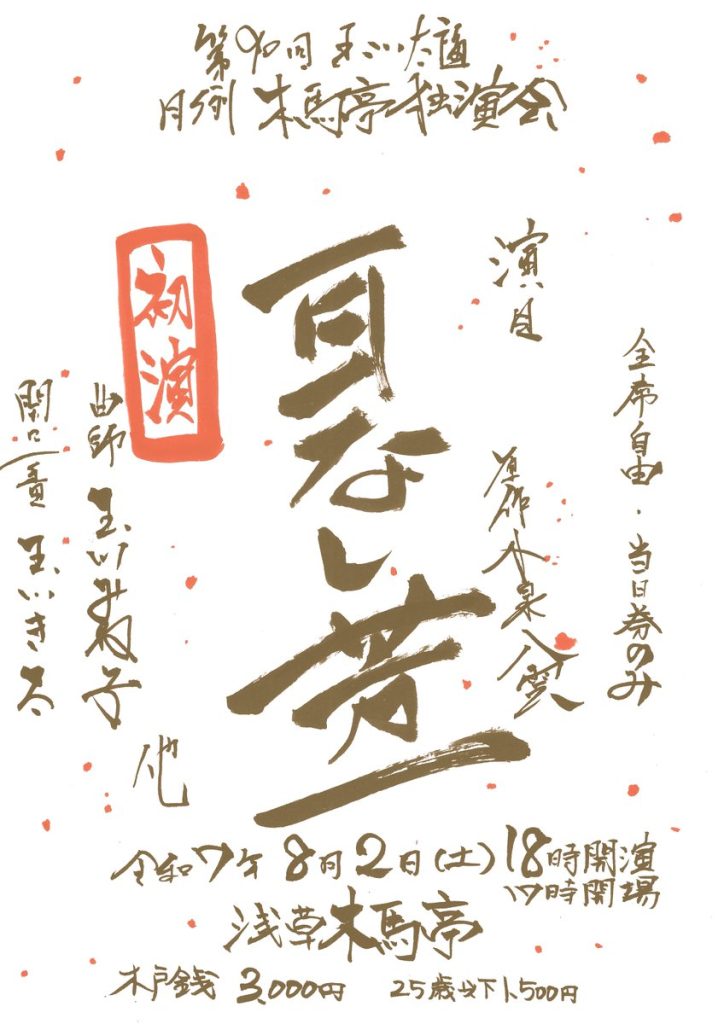 第90回 玉川太福
月例 木馬亭独演会
全席自由・当日券のみ
演目
原作 小泉八雲
耳なし芳一
初演
曲師 玉川みね子
開口一番 玉川き太
他
令和7年8月2日(土)18時開演
17時開場
浅草木馬亭
木戸銭 3,000円 25歳以下1,500円